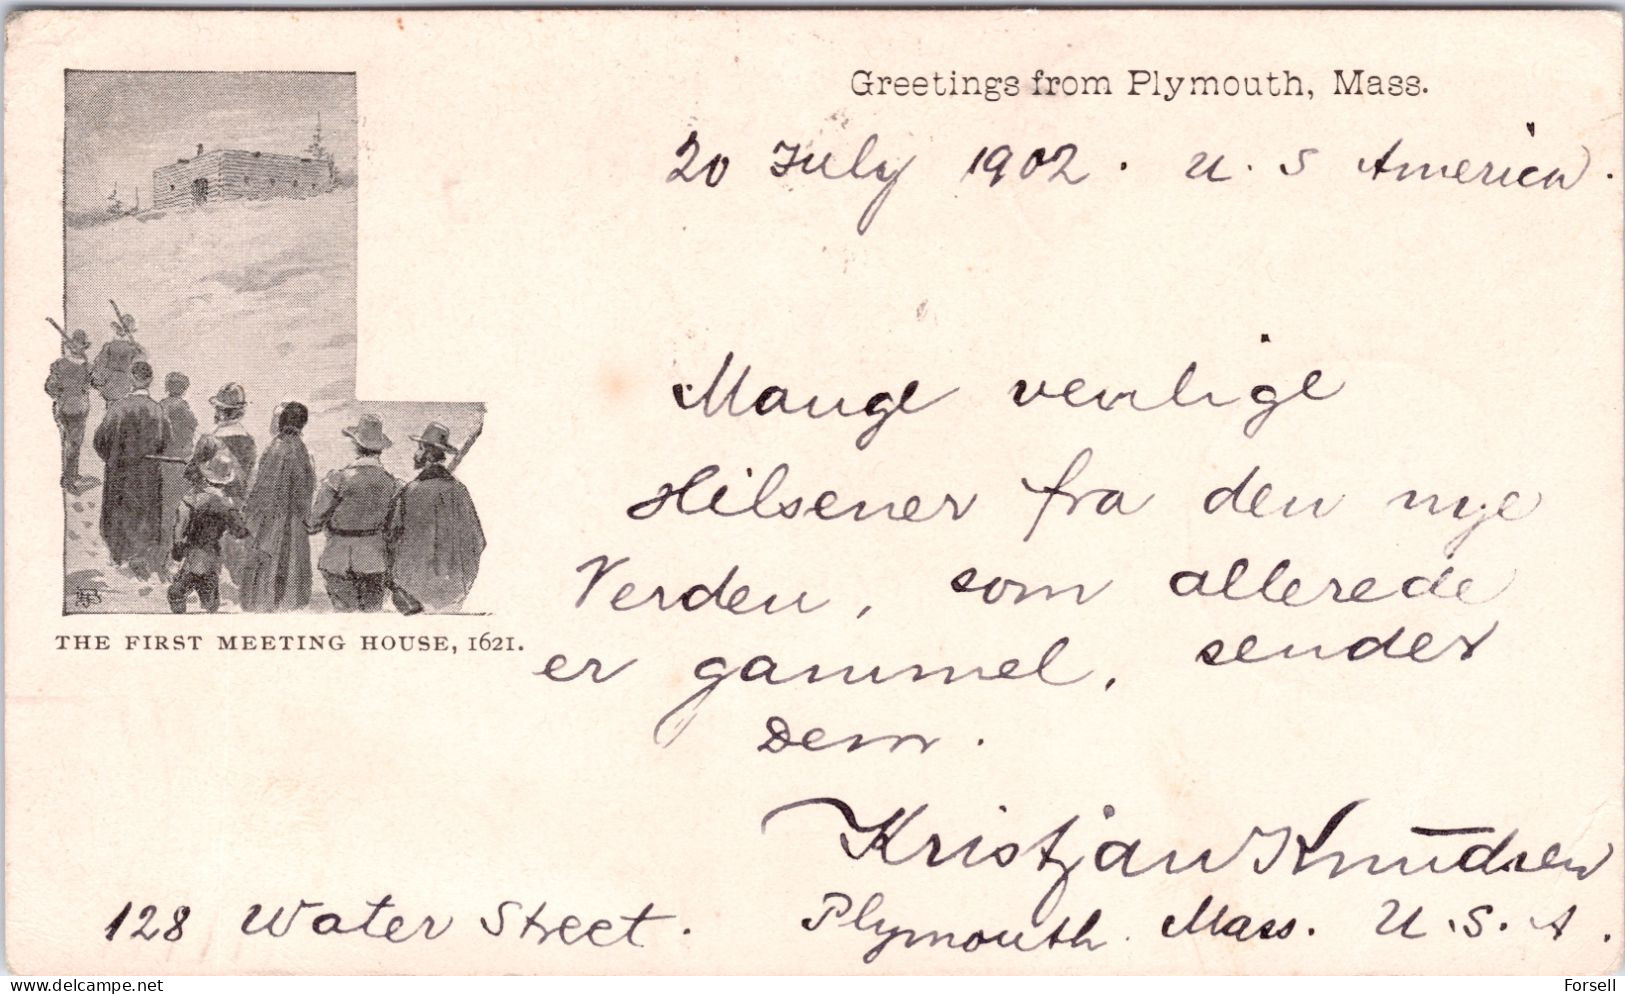 Greetings from Plymouth, Mass.
20 July 1902. U. S America.
Mange venlige
Hilsener fra den nye
Verden, som allerede
er gammel, sender
Dem.
Kristjan Knudsen
128 Water Street. Plymouth. Mass. U.S. A.
THE FIRST MEETING HOUSE, 1621.
delcampe.net
Forsell